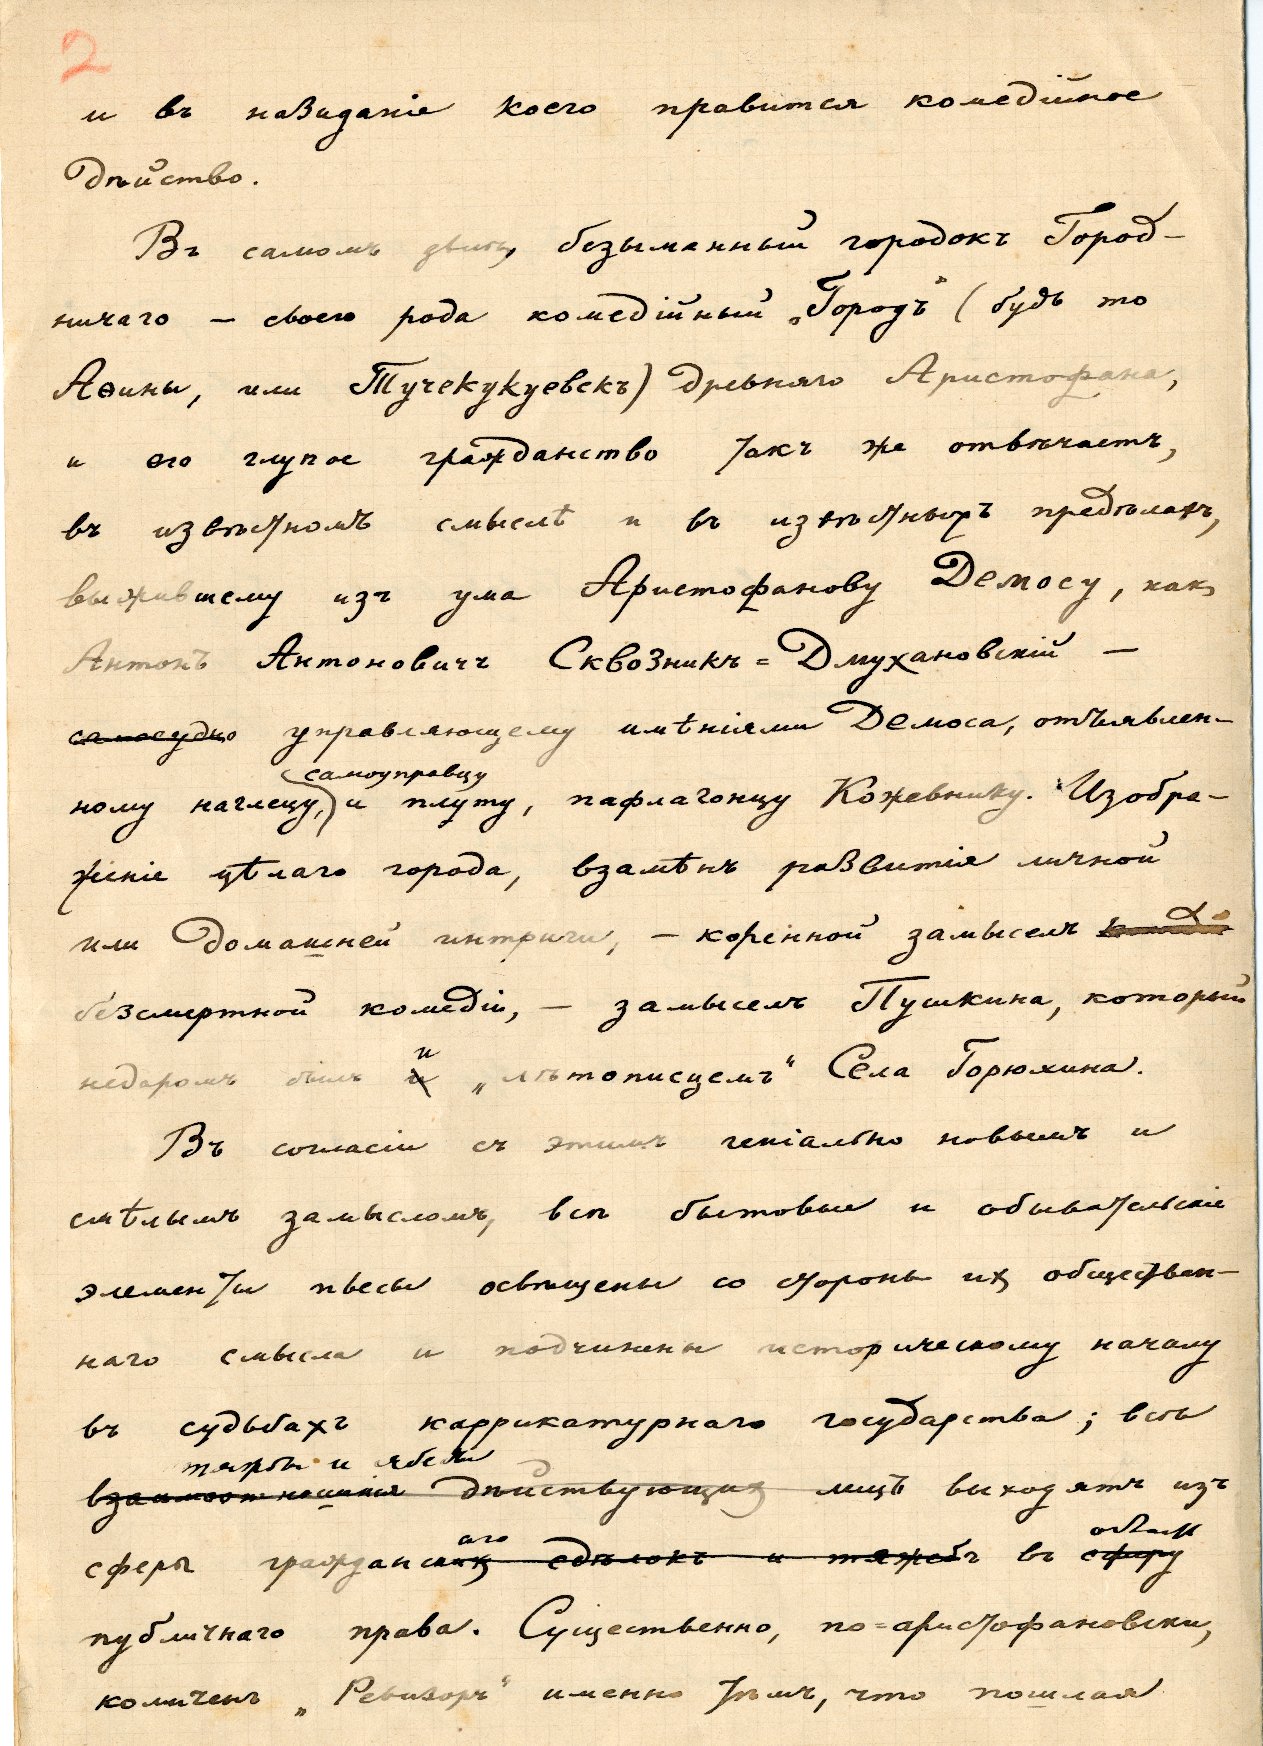 2
и въ назиданіе коего правится комедійное
дѣйство.
Въ самомъ дѣлѣ, безыманный городокъ Город-
ничаго — своего рода комедійный „Городъ“ (будь то
Аѳины, или Тучекукуевскъ) древняго Аристофана,
и его глупое гражданство такъ же отвѣчаетъ,
въ извѣстномъ смыслѣ и въ извѣстныхъ предѣлахъ,
выжившему изъ ума Аристофанову Демосу, какъ
Антонъ Антоновичъ Сквозникъ=Дмухановскій —
самосудно управляющему имѣніями Демоса, отъявлен-
самоуправцу
ному наглецу, и плуту, пафлагонцу Кожевнику. Изобра-
женіе цѣлаго города, взамѣнъ развитія личной
или домашней интриги, — коренной замыселъ
безсмертной комедіи, — замыселъ Пушкина, который
и
недаромъ былъ и „лѣтописцемъ“ Села Горюхина.
Въ согласіи съ этимъ геніально новымъ и
смѣлымъ замысломъ, всѣ бытовые и обывательскіе
элементы пьесы освѣщены со стороны ихъ обществен-
наго смысла и подчинены историческому началу
въ судьбахъ каррикатурнаго государства; всѣ
тяжбы и ябеды
взаимоотношенія дѣйствующихъ лицъ выходятъ изъ
аго область
сферы гражданскихъ сдѣлокъ и тяжебъ въ сферу
публичнаго права. Существенно, по=аристофановски,
комиченъ „Ревизоръ“ именно тѣмъ, что пошлая